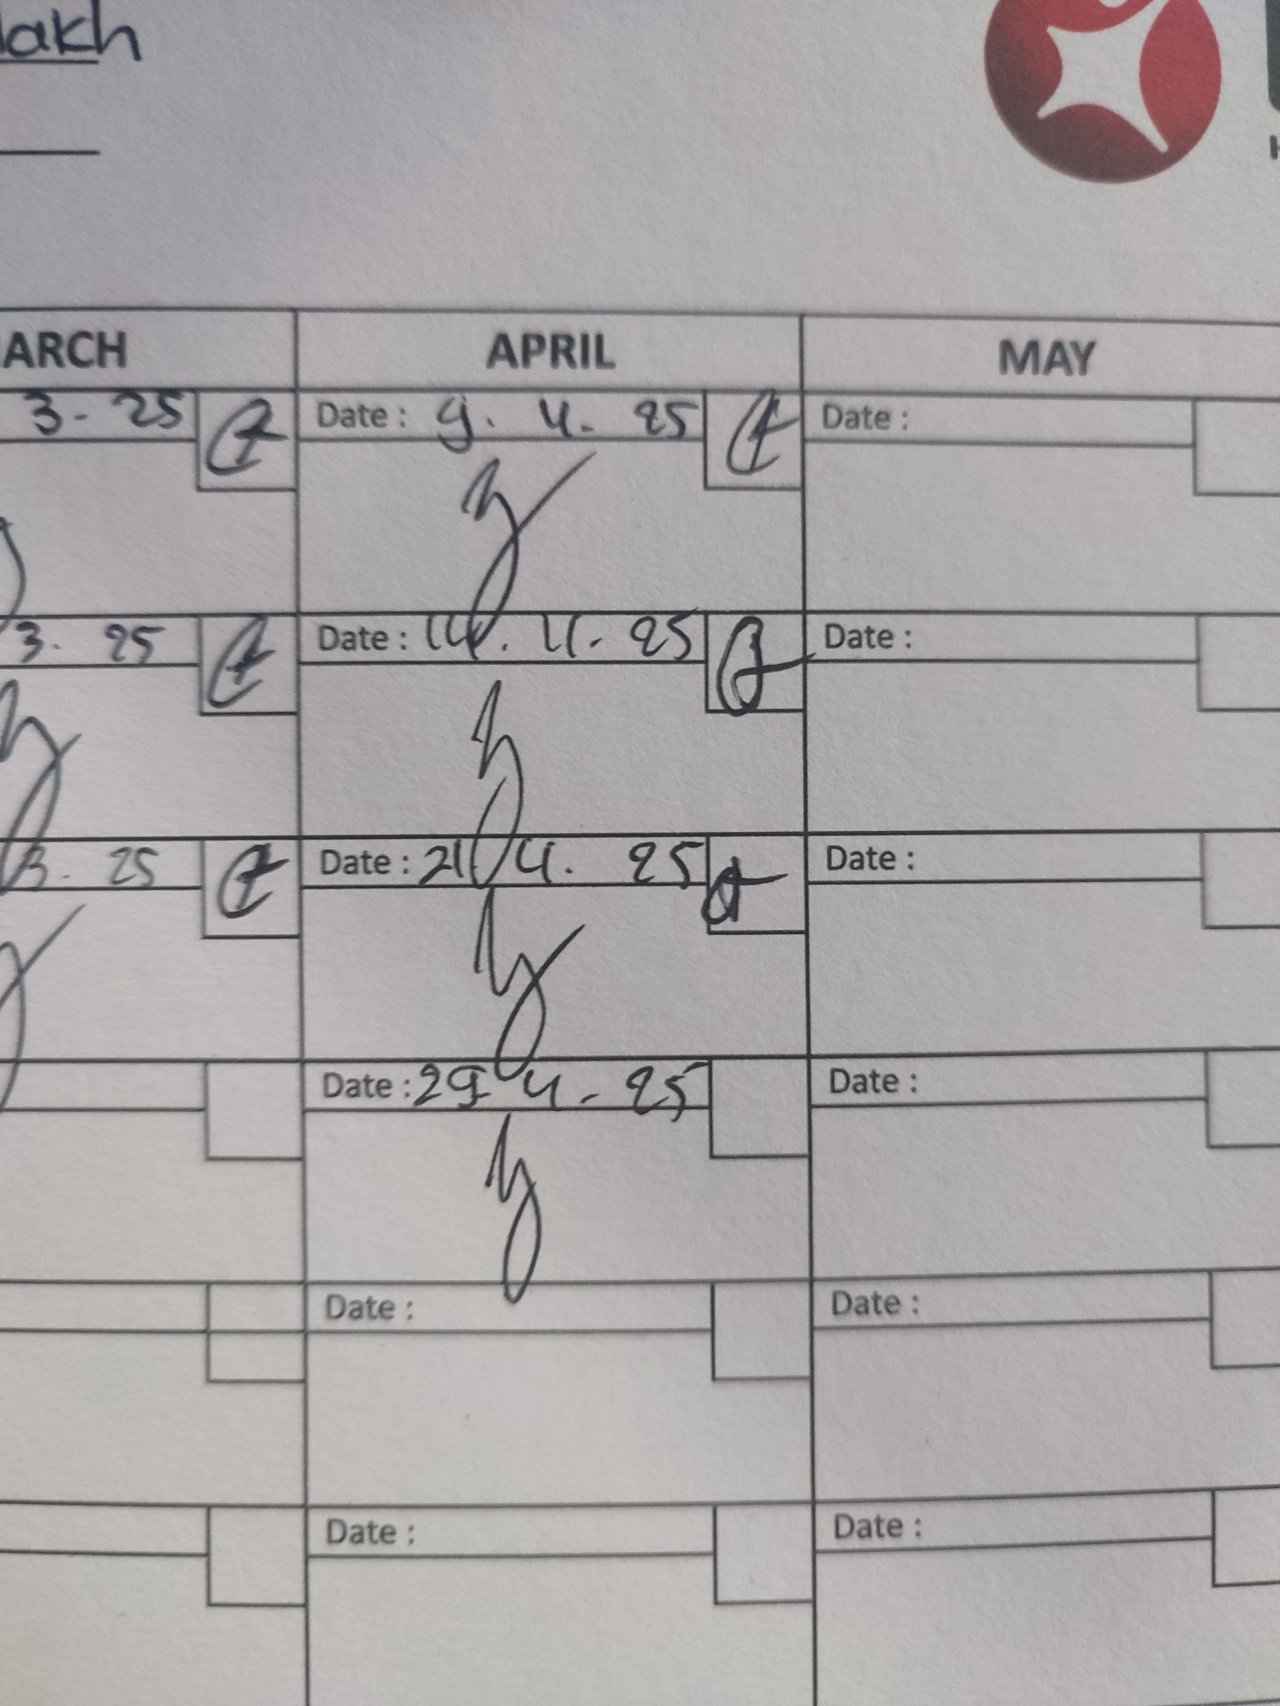 lakh
ARCH APRIL MAY
3-25 Date : 9. 4. 25 Date :
3. 25 Date : 14. 4. 25 Date :
3. 25 Date : 21 4. 25 Date :
Date : 29 4. 25 Date :
Date : Date :
Date : Date :